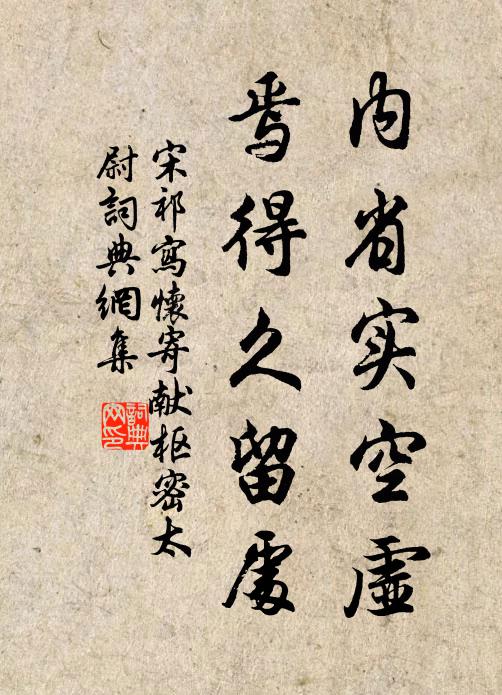 内省实空虚
焉得久留處
宋祁寫懷寄献枢密太
尉詞典網集
詞典
网印